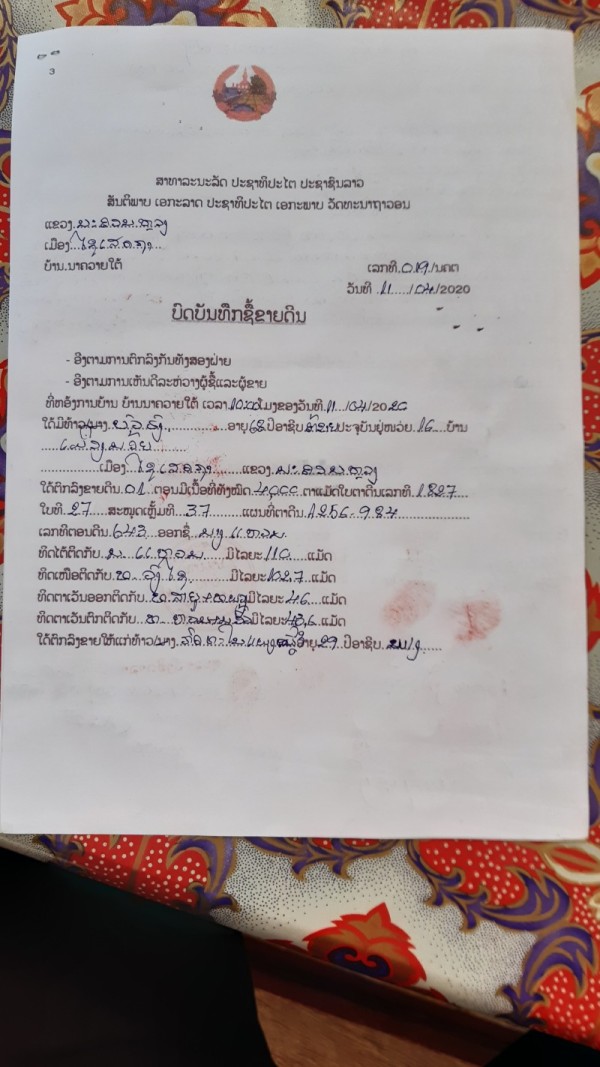 3
ສາທາລະນະລັດ ປະຊາທິປະໄຕ ປະຊາຊົນລາວ
ສັນຕິພາບ ເອກະລາດ ປະຊາທິປະໄຕ ເອກະພາບ ວັດທະນາຖາວອນ
ແຂວງ.ນະຄອນຫຼວງ
ເມືອງ...ໄຊເສດຖາ...
ບ້ານ.ນາຄວາຍໃຕ້
ເລກທີ.019./ນຄຕ
ວັນທີ .11...../04/2020
ບົດບັນທຶກຊື້ຂາຍດິນ
- ອີງຕາມການຕົກລົງກັນທັງສອງຝ່າຍ
- ອີງຕາມການເຫັນດີລະຫ່ວາງຜູ້ຊື້ແລະຜູ້ຂາຍ
ທີ່ຫອ້ງການບ້ານ ບ້ານນາຄວາຍໃຕ້ ເວລາ ໂມງຂອງວັນທີ.11...04/2020
ໄດ້ມີທ້າວ/ນາງ. ອາຍຸ ປີອາຊິບ ປະຈຸບັນຢູ່ໜ່ວຍ..16....ບ້ານ
ເມືອງ..ໄຊເສດຖາ........ແຂວງ..ນະຄອນຫຼວງ
ໄດ້ຕົກລົງຂາຍດິນ.01..ຕອນມີເນື້ອທີ່ທັງໝົດ. ຕາແມັດໃບຕາດິນເລກທີ.1827....
ໃບທີ.27.....ສະໝຸດເຫຼັ້ມທີ...37........ແຜນທີ່ຕາດິນ.1256-924.....................
ເລກທີຕອນດິນ.643...ອອກຊື່
ທິດໄຕ້ຕິດກັບ. ມີໄລຍະ.110....ແມັດ
ທິດເໜືອຕິດກັບ. ມີໄລຍະ.102.7....ແມັດ
ທິດຕາເວັນອອກຕິດກັບ. ມີໄລຍະ.46....ແມັດ
ທິດຕາເວັນຕົກຕິດກັບ. ມີໄລຍະ. ແມັດ
ໄດ້ຕົກລົງຂາຍໃຫ້ແກ່ທ້າວ/ນາງ. ອາຍຸ.29..ປີອາຊີບ.